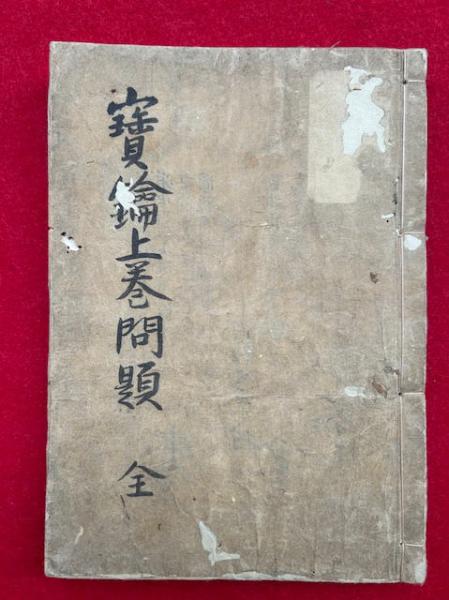 寶鑰上巻問題 全